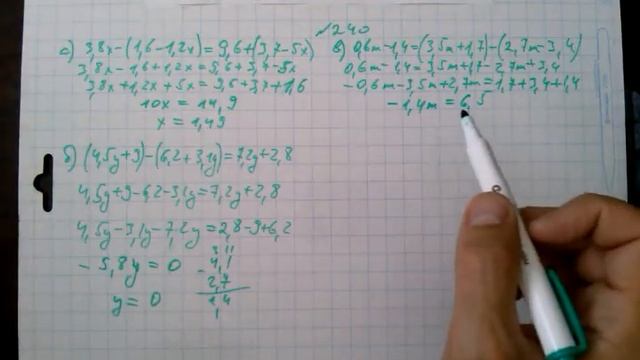 №240
а) 3,8x-(1,6-1,2x)=9,6+(3,7-5x)
3,8x-1,6+1,2x=9,6+3,7-5x
3,8x+1,2x+5x=9,6+3,7+1,6
10x=14,9
x=1,49
б) (4,5y+9)-(6,2+3,1y)=7,2y+2,8
4,5y+9-6,2-3,1y=7,2y+2,8
4,5y-3,1y-7,2y=2,8-9+6,2
-5,8y=0
y=0
3 11
4,1
- 2,7
1,4
в) 0,6m-1,4=(3,5m+1,7)-(2,7m-3,4)
0,6m-1,4=3,5m+1,7-2,7m+3,4
-0,6m-3,5m+2,7m=1,7+3,4+1,4
-1,4m=6,5